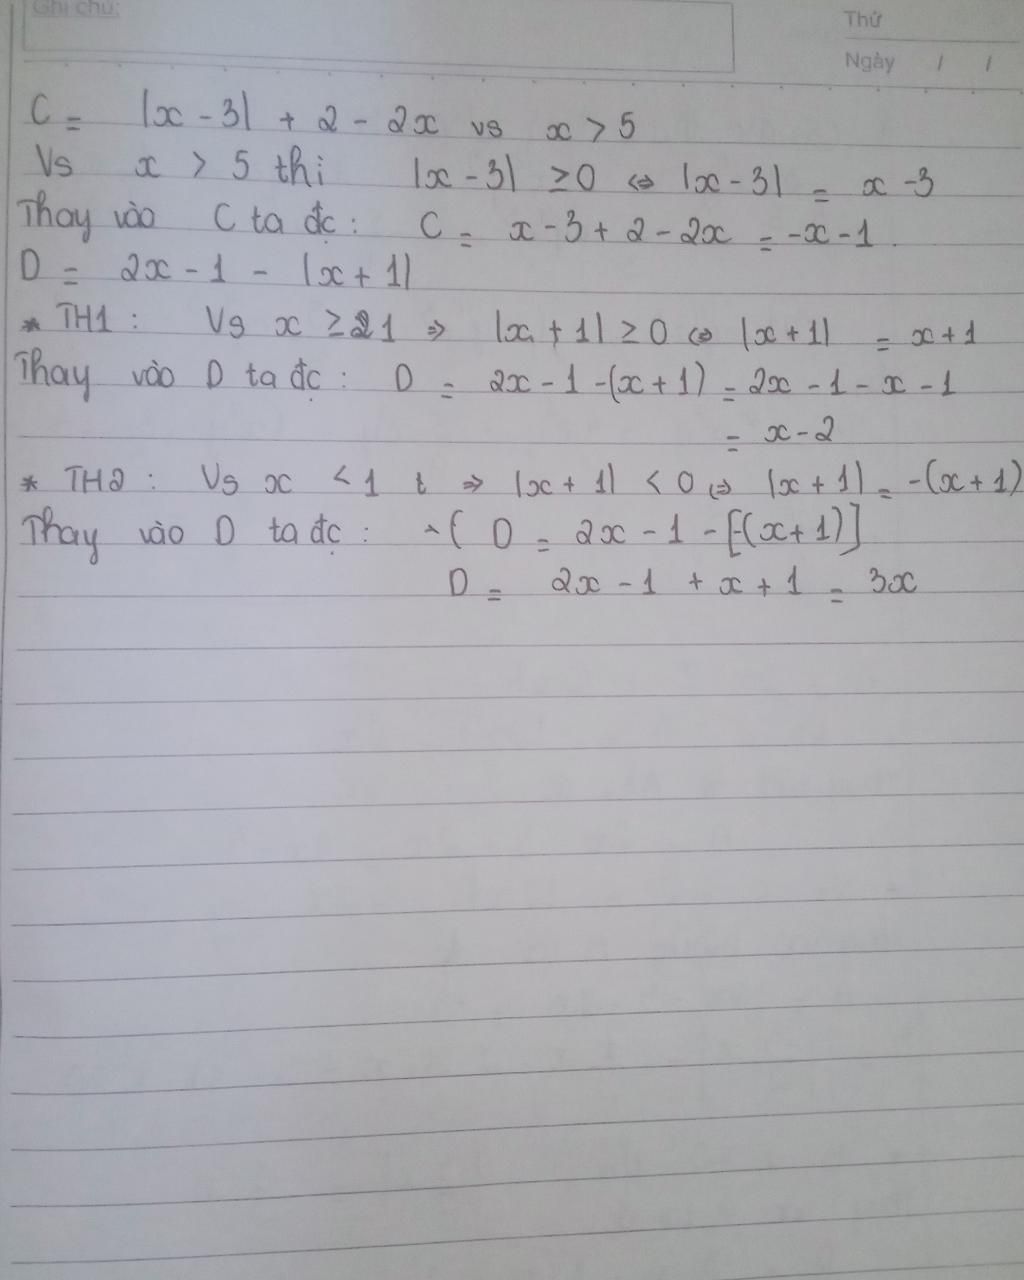 Ghi chú:
Thứ
Ngày / /
C = |x - 3| + 2 - 2x vs x > 5
Vs x > 5 thi |x - 3| ≥ 0 ⇔ |x - 3| = x - 3
Thay vào C ta đc : C = x - 3 + 2 - 2x = -x - 1 .
D = 2x - 1 - |x + 1|
* TH1 : Vs x ≥ 1 ⇒ |x + 1| ≥ 0 ⇔ |x + 1| = x + 1
Thay vào D ta đc : D = 2x - 1 - (x + 1) = 2x - 1 - x - 1
= x - 2
* TH2 : Vs x < 1 t ⇒ |x + 1| < 0 ⇔ |x + 1| = -(x + 1)
Thay vào D ta đc : - ( D = 2x - 1 - [-(x + 1)]
D = 2x - 1 + x + 1 = 3x